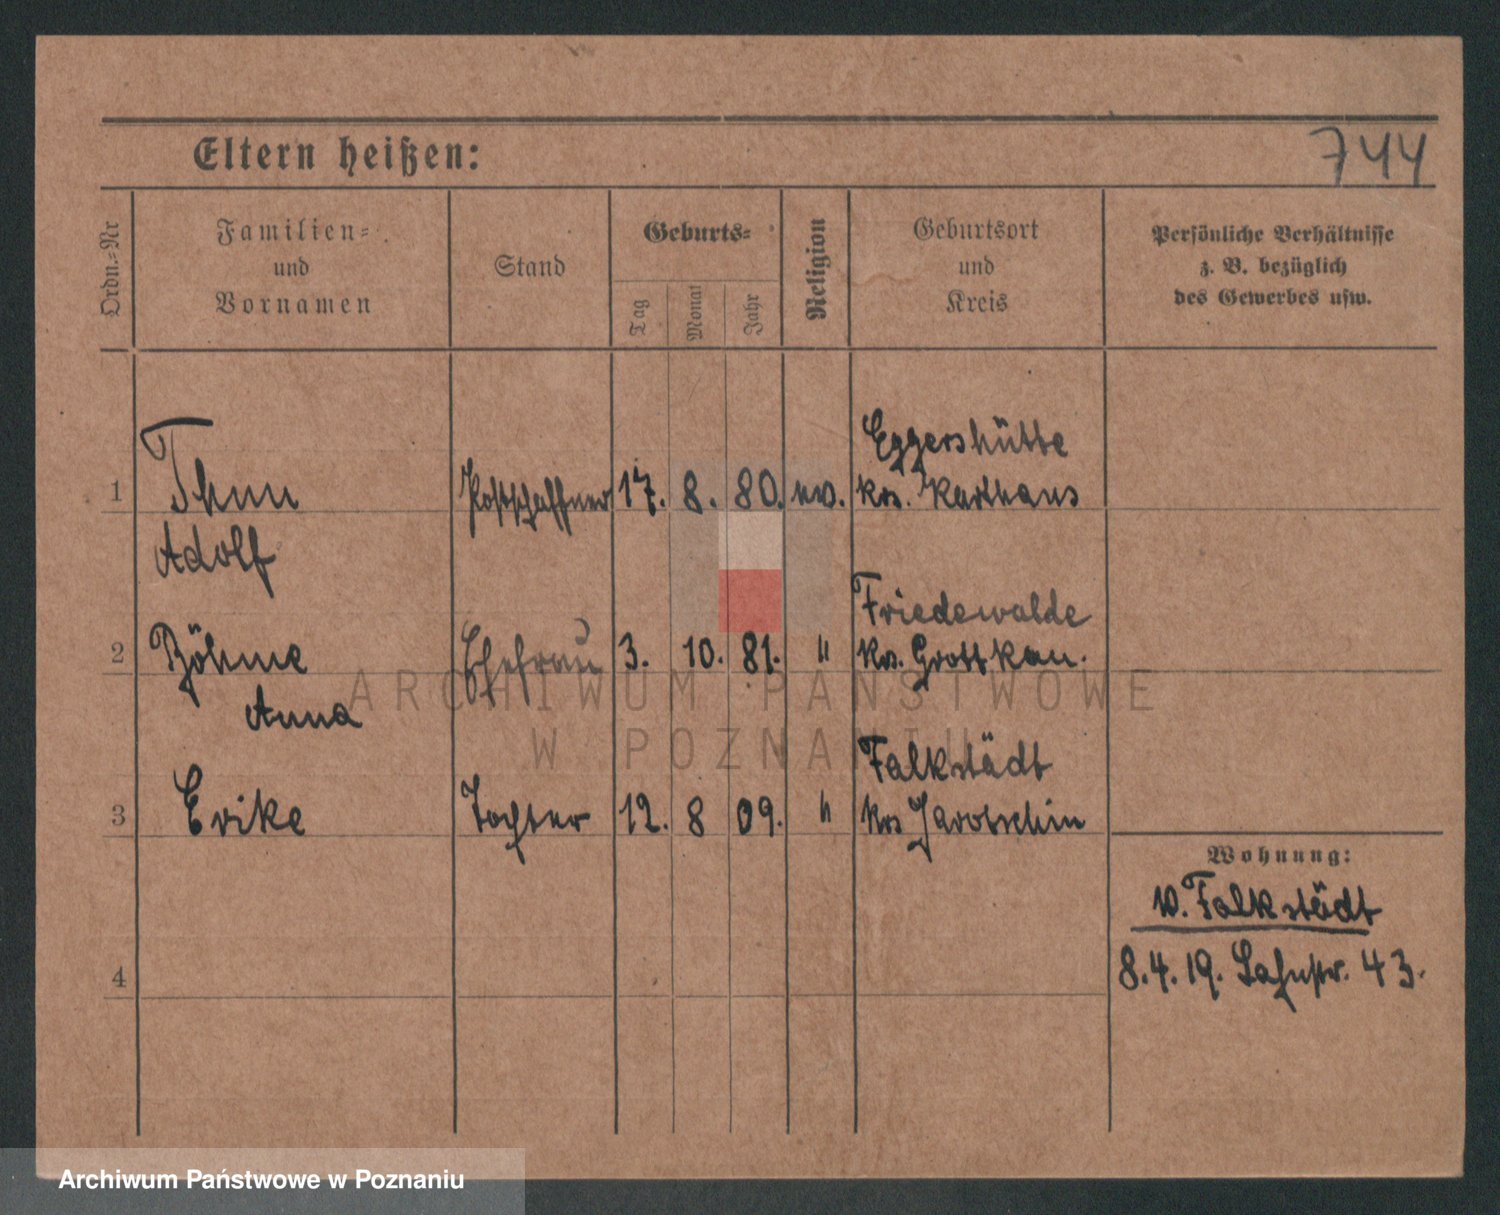 Eltern heißen:
744
Ordn.=Nr
Familien=
und
Vornamen
Stand
Geburts=
Tag
Monat
Jahr
Religion
Geburtsort
und
Kreis
Persönliche Verhältnisse
z. B. bezüglich
des Gewerbes usw.
Eggershütte
1 Thun Postschaffner 17. 8. 80. ev. Krs. Karthaus
Adolf
Friedewalde
2 Böhme Ehefrau 3. 10. 81. " Krs. Grottkau.
Anna
Falkstädt
3 Erike Tochter 12. 8 09. " Krs Jarotschin
Wohnung:
v. Falkstädt
4
8.4.19. 43.
ARCHIWUM PAŃSTWOWE
W POZNANIU
Archiwum Państwowe w Poznaniu